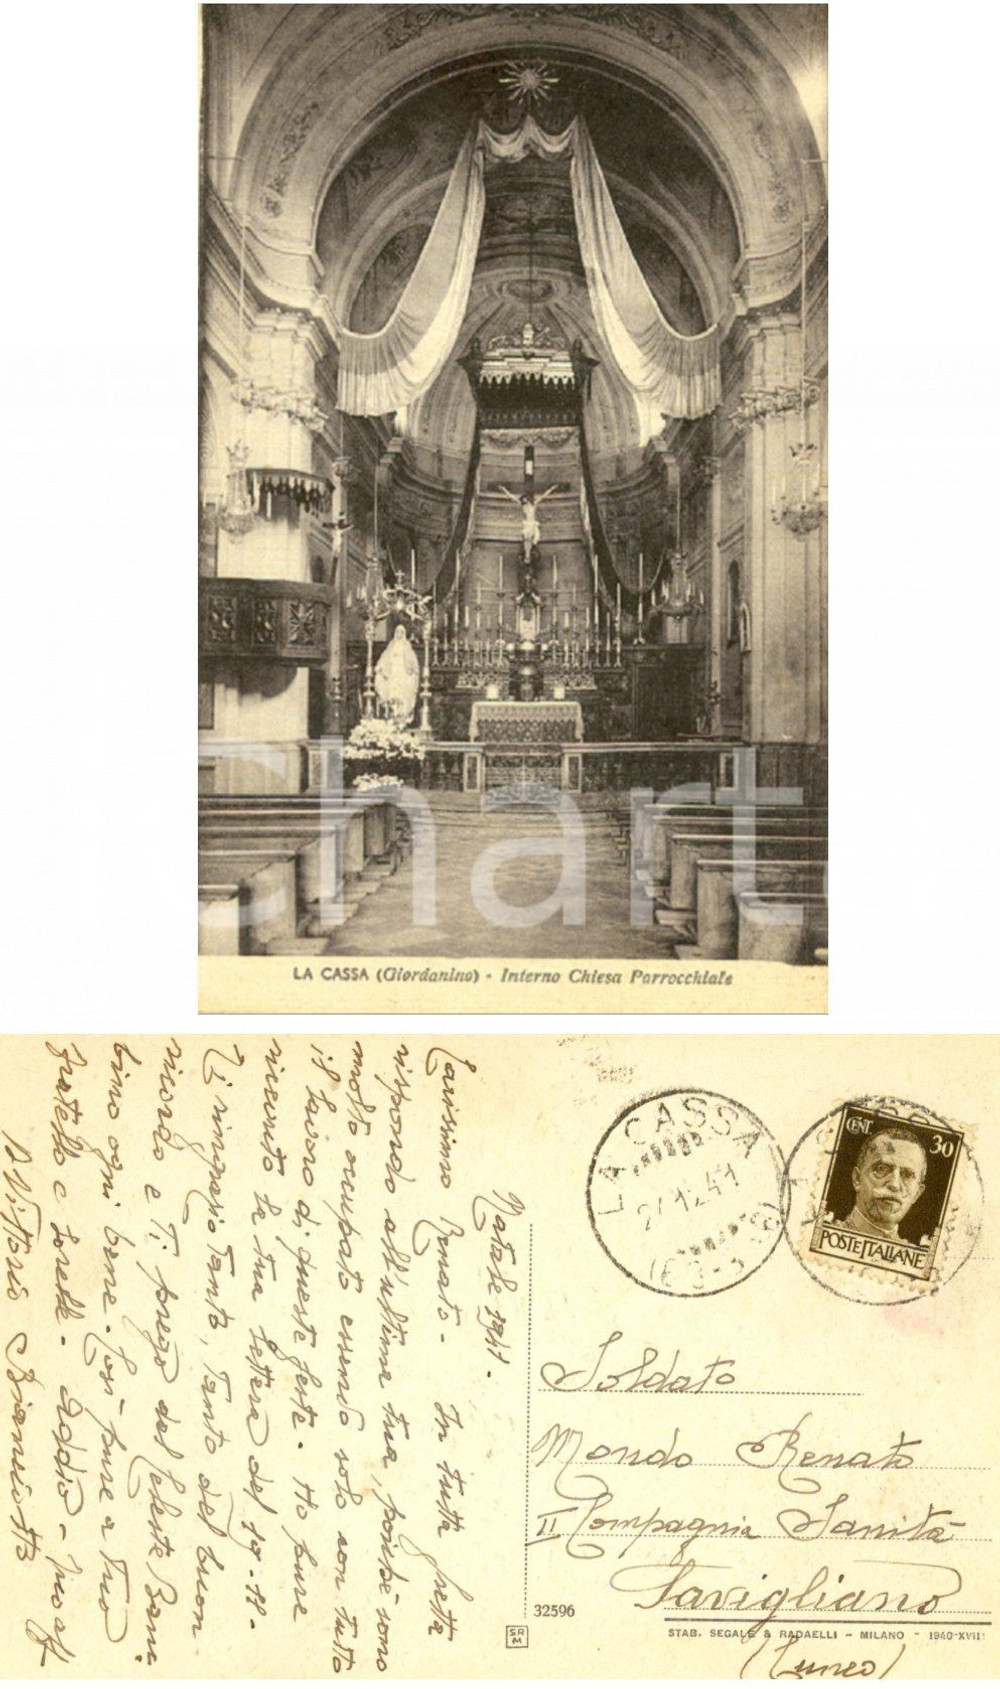 LA CASSA (Giordanino) - Interno Chiesa Parrocchiale
Charta
Natale 1941.
Carissimo Renato - In tutta fretta
rispondo all'ultima tua, poichè sono
molto occupato essendo solo con tutto
il lavoro di queste feste. Ho pure
ricevuto la tua lettera del
Ti ringrazio tanto, tanto del buon
ricordo e Ti prego dal Celeste Bam-
bino ogni bene. Così pure a Tuo
fratello e sorelle. Addio - Tuo aff
D. Vittorio
LA CASSA
CENT. 30
POSTE ITALIANE
Soldato
Mondo Renato
II Compagnia Sanità
Savigliano
(Cuneo)
32596
SR
M
STAB. SEGALE & RADAELLI - MILANO - 1940-XVIII